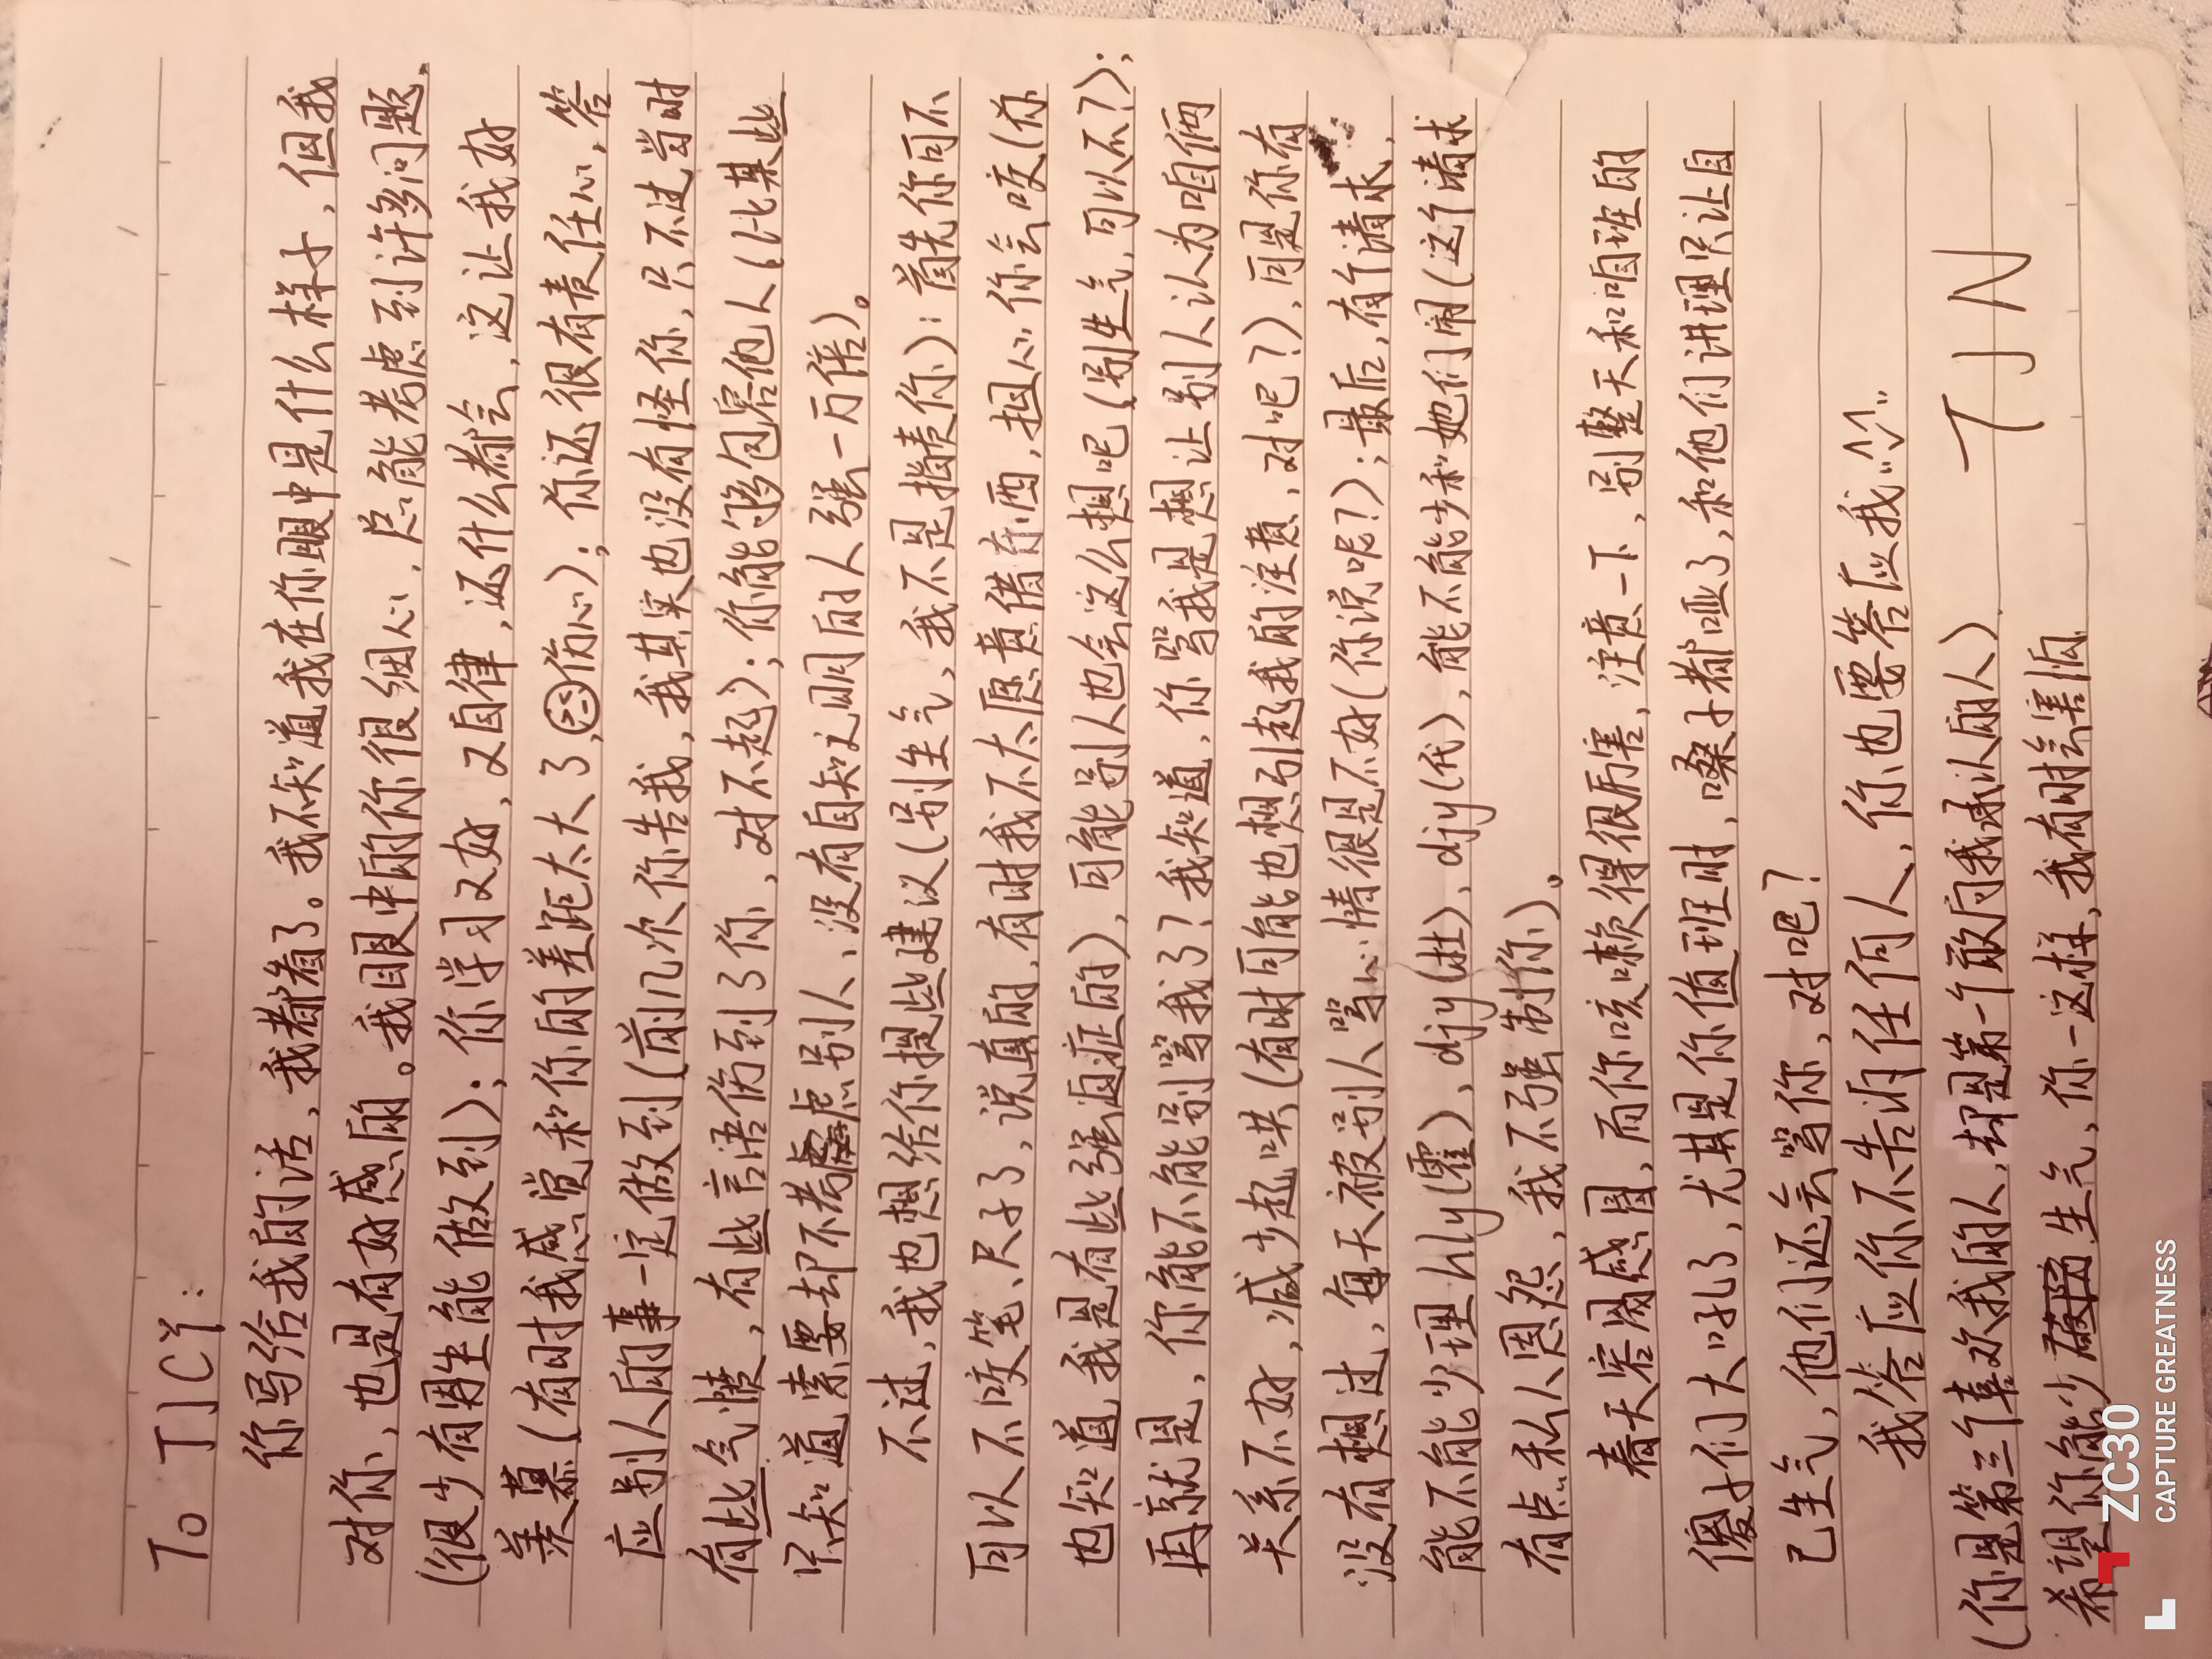 To TJCY:
你写给我的话，我都看了。我不知道我在你眼中是什么样子，但我
对你，也是有好感的。我眼中的你很细心，总能考虑到许多问题，
(很少有男生能做到)；你学习又好，又自律，还什么都会，这让我好
羡慕(有时我感觉和你的差距太大了，伤心)；你还很有责任心，答
应别人的事一定做到(前几次你告我，我其实也没有怪你，只不过当时
有些气愤，有些言语伤到了你，对不起)；你能够包容他人(比某些
只知道索要却不考虑别人、没有自知之明的人强一万倍)。
不过，我也想给你提些建议(别生气，我不是指责你)：首先你可不
可以不咬笔、尺子了，说真的，有时我不太愿意借东西，担心你会咬(你
也知道，我是有些强迫症的)，可能别人也会这么想吧(别生气，可以不?)；
再就是，你能不能别骂我了?我知道，你骂我是想让别人认为咱俩
关系不好，减少起哄(有时可能也想引起我的注意，对吧?)，可是你有
没有想过，每天被别人骂心情很是不好(你说呢?)；最后，有个请求，
能不能少理hly(霍)、djy(杜)、djy(代)，能不能少和她们闹(这个请求
有点私人恩怨，我不强制你)。
春天容易感冒，而你咳嗽得很厉害，注意一下，别整天和咱班的
傻子们大吼了，尤其是你值班时，嗓子都哑了，和他们讲理只让自
己生气，他们还会骂你，对吧?
我答应你不告诉任何人，你也要答应我
(你是第三个喜欢我的人，却是第一个敢向我承认的人).
希望你能少生气，你一这样，我有时会害怕.
TJN
ZC30
CAPTURE GREATNESS